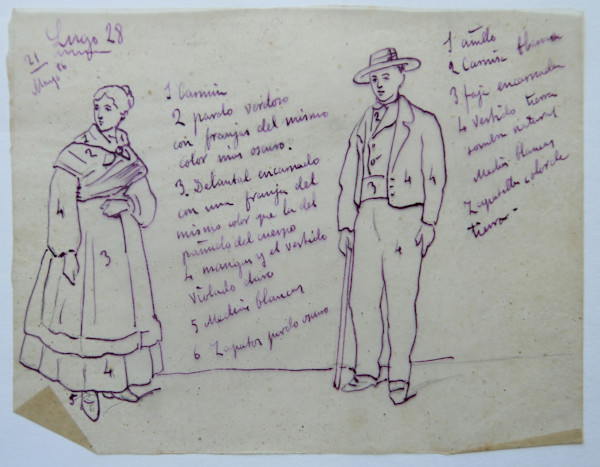 Lugo 28
21
Mayo 86
1 Carmin
2 pardo verdoso
con franjas del mismo
color mas oscuro.
3. Delantal encarnado
con una franja del
mismo color que la del
pañuelo del cuerpo
4 mangas y el vestido
violado claro
5 Medias blancas
6 Zapatos pardo oscuro
1 anillo
2 Camisa blanca
3 faja encarnada
4 vestido tierra
sombra natural
Medias blancas
Zapatillas color de
tierra.
1
2
4
3
4
5
2
3
4
4
4